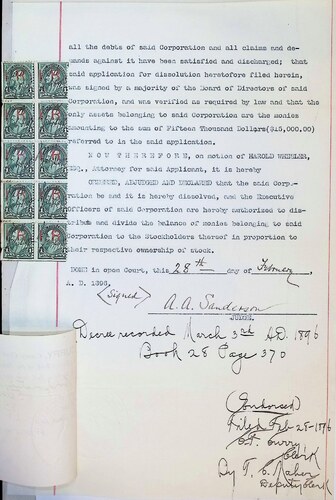 all the debts of said Corporation and all claims and de-
mands against it have been satisfied and discharged; that
said application for dissolution heretofore filed herein,
was signed by a majority of the Board of Directors of said
Corporation, and was verified as required by law and that the
only assets belonging to said Corporation are the monies
amounting to the sum of Fifteen Thousand Dollars($15,000.00)
referred to in the said application.
NOW THEREFORE, on motion of HAROLD WHEELER,
Esq., Attorney for said Applicant, it is hereby
ORDERED, ADJUDGED AND DECLARED that the said Corpo-
ration be and it is hereby dissolved, and the Executive
Officers of said Corporation are hereby authorized to dis-
tribute and divide the balance of monies belonging to said
Corporation to the Stockholders thereof in proportion to
their respective ownership of stock.
DONE in open Court, this 28th day of February
A. D. 1896.
(Signed)
A. A. Sanderson
JUDGE.
Decree recorded March 3rd A.D. 1896
Book 28 Page 370
(Endorsed)
Filed Feb 28-1896
Curry
Clerk
By T. C. Maher
Deputy Clerk